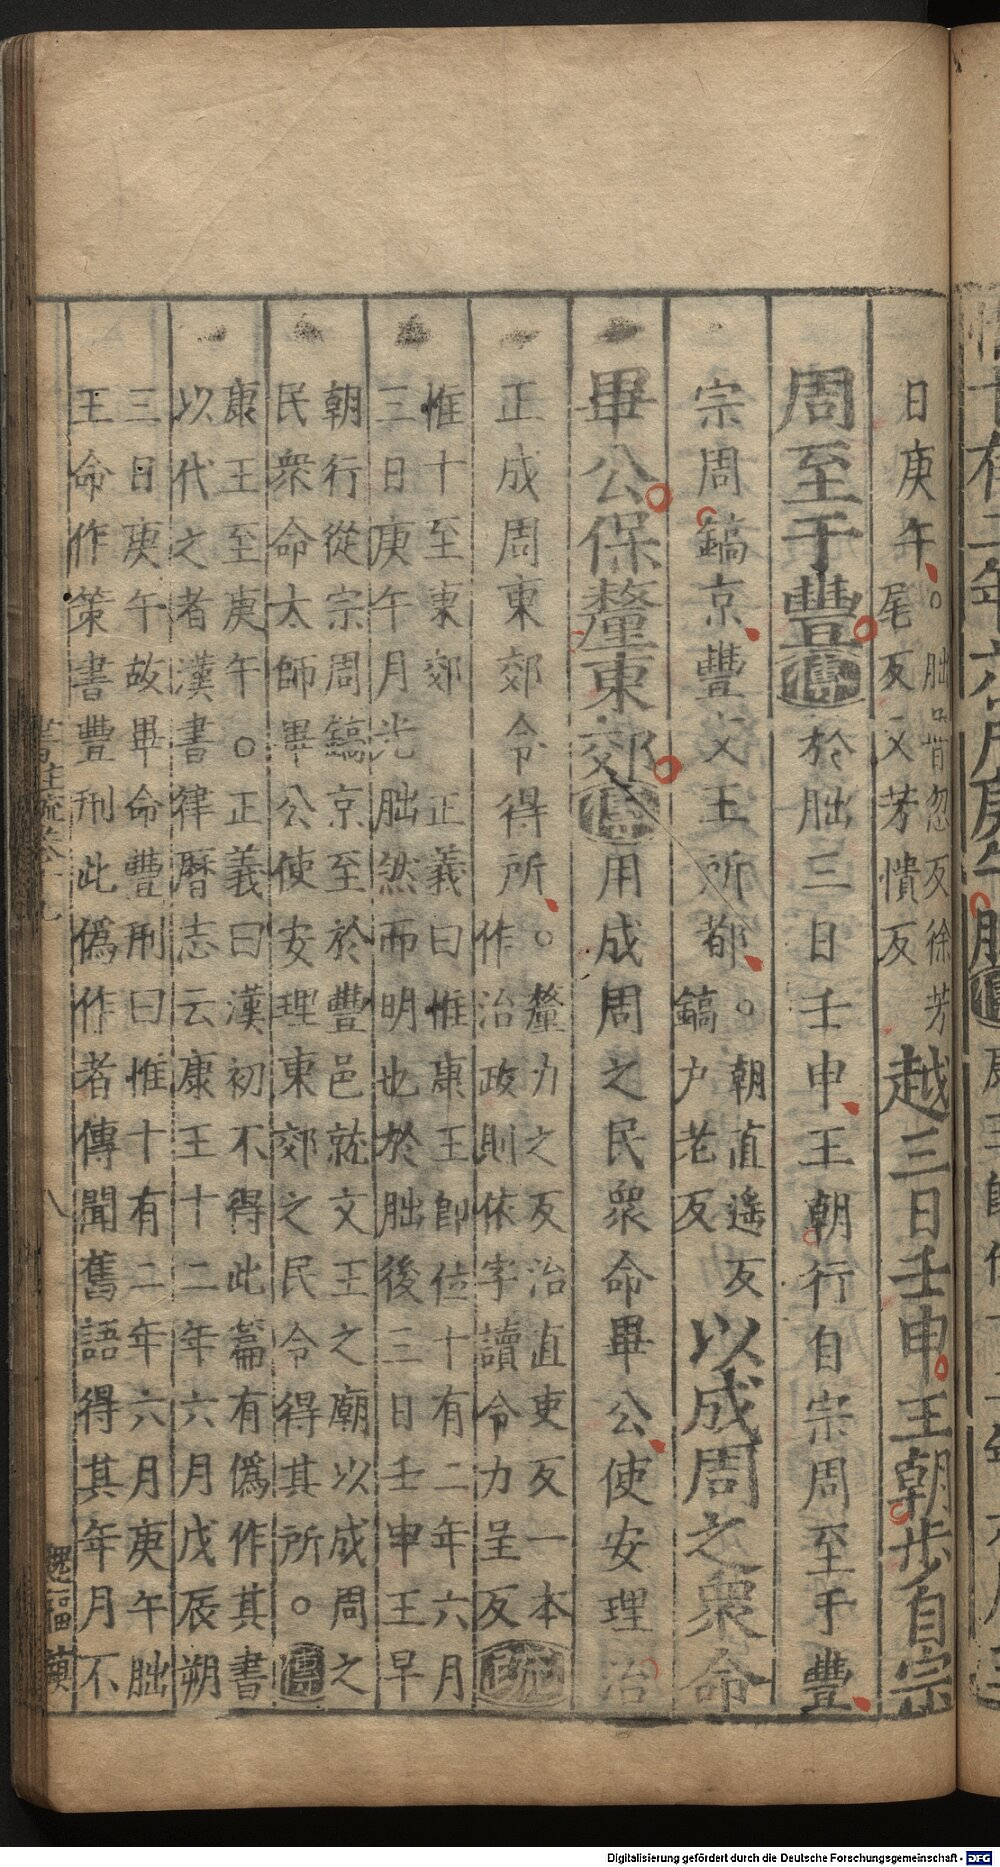 日庚午。朏普忽反徐芳尾反又芳憒反越三日壬申王朝步自宗
周至于豐傳於朏三日壬申王朝行自宗周至于豐
宗周鎬京豐文王所都。朝直遙反鎬户老反以成周之衆命
畢公保釐東郊傳用成周之民衆命畢公使安理治
正成周東郊令得所。釐力之反治直吏反一本作治政則依字讀令力呈反疏
惟十至東郊 正義曰惟康王卽位十有二年六月
三日庚午月光朏然而明也於朏後三日壬申王早
朝行從宗周鎬京至於豐邑就文王之廟以成周之
民衆命太師畢公使安理東郊之民令得其所。傳
康王至庚午。正義曰漢初不得此篇有僞作其書
以代之者漢書律曆志云康王十二年六月戊辰朔
三日庚午故畢命豐刑曰惟十有二年六月庚午朏
王命作策書豐刑此僞作者傳聞舊語得其年月不
書注疏卷十九
八
Digitalisierung gefördert durch die Deutsche Forschungsgemeinschaft - DFG